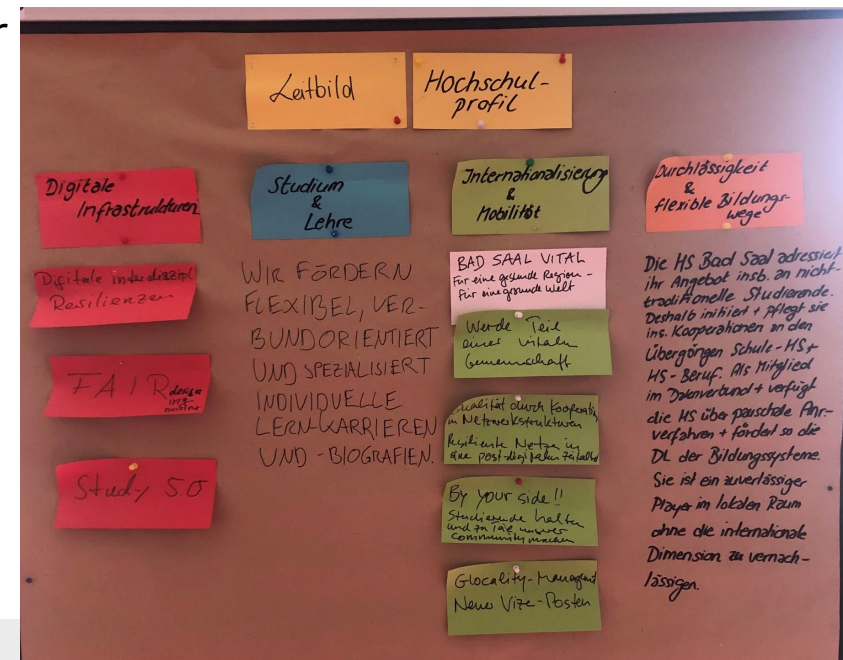 r
Leitbild
Hochschul-
profil
Digitale
Infrastrukturen
Digitale interdiszipl
Resilienzen
FAIR
Study 5.0
Studium
&
Lehre
WIR FÖRDERN
FLEXIBEL, VER-
BUNDORIENTIERT
UND SPEZIALISIERT
INDIVIDUELLE
LERN-KARRIEREN
UND -BIOGRAFIEN.
Internationalisierung
&
Mobilität
BAD SAAL VITAL
Für eine gesunde Region -
Für eine gesunde Welt
Werde Teil
einer vitalen
Gemeinschaft
durch Kooperation
in Netzwerkstrukturen
Resiliente Netze in
post-digitalen Zeitalter
By your side!!
Studierende halten
und zu Teil unserer
Community machen
Glocality-Management
Neuer Vize-Posten
Durchlässigkeit
&
flexible Bildungs-
wege
Die HS Bad Saal adressiert
ihr Angebot insb. an nicht-
traditionelle Studierende.
Deshalb initiiert + pflegt sie
ins. Kooperationen an den
Übergängen Schule-HS +
HS-Beruf. Als Mitglied
im Datenverbund + verfügt
die HS über pauschale Anr-
verfahren + fördert so die
DL der Bildungssysteme.
Sie ist ein zuverlässiger
Player im lokalen Raum
ohne die internationale
Dimension zu vernach-
lässigen